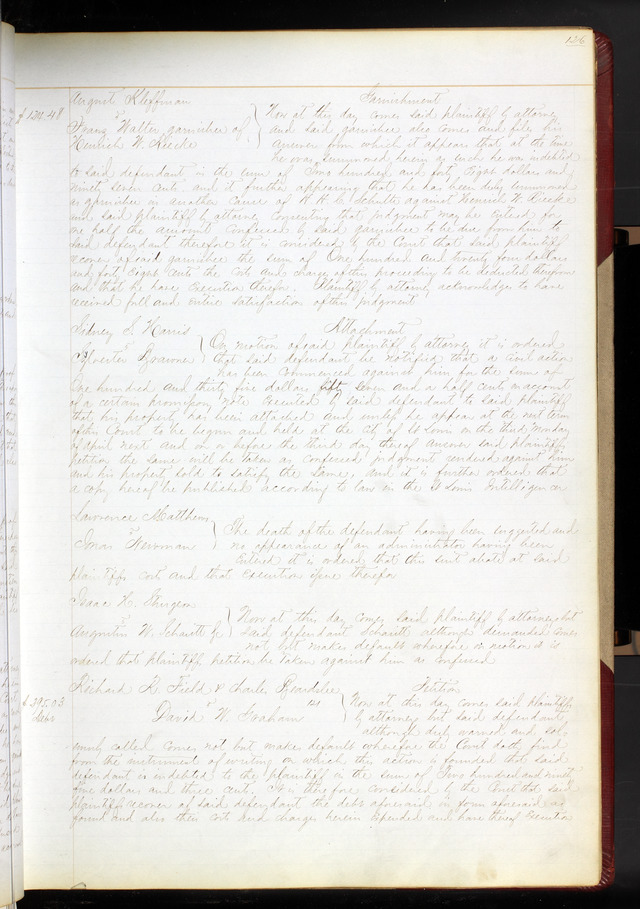 126
August Kleffman Garnishment
$ 124.48 vs Now at this day comes said plaintiff by attorney
Franz Walter garnishee of and said garnishee also comes and files his
Heinrich W. answer from which it appears that at the time
he was summoned herein as such he was indebted
to said defendant in the sum of Two hundred and forty Eight dollars and
ninety seven cents and it further appearing that he has been duly summoned
as garnishee in another cause of Schulte against Heinrich W.
and said plaintiff by attorney consenting that judgment may be entered for
one half the amount confessed by said garnishee to be due from him to
said defendant therefore it is considered by the Court that said plaintiff
recover of said garnishee the sum of One hundred and twenty four dollars
and forty Eight cents the costs and charge of this proceeding to be deducted therefrom
and that he have execution therefor. Plaintiff by attorney acknowledges to have
received full and entire satisfaction of this judgment
Sidney S. Harris Attachment
vs On motion of said plaintiff by attorney it is ordered
Sylvester Browne that said defendant be notified that a civil action
has been commenced against him for the sum of
One hundred and thirty five dollars seven and a half cents on account
of a certain promissory note executed by said defendant to said plaintiff
that his property has been attached and unless he appear at the next term
of this Court to be begun and held at the City of St Louis on the third Monday
of April next and on or before the third day thereof answer said plaintiffs
petition the same will be taken as confessed judgment rendered against him
and his property sold to satisfy the same, and it is further ordered that
a copy hereof be published according to law in the St Louis Intelligencer
Lawrence Matthews
vs The death of the defendant having been suggested and
Newman no appearance of an administrator having been
entered it is ordered that this suit abate at said
plaintiffs cost and that execution issue therefor
Isaac H. Sturgeon
vs Now at this day comes said plaintiff by attorney but
Augustin W. said defendant although demanded comes
not but makes default wherefore on motion it is
ordered that plaintiffs petition be taken against him as confessed
Richard K. Field & Beardslee Petition
$ 295.03 vs Now at this day comes said plaintiffs
Debt David W. Graham by attorney but said defendant
although duly warned and sol-
emnly called comes not but makes default wherefore the Court doth find
from the instrument of writing on which this action is founded that said
defendant is indebted to the plaintiff in the sum of Two hundred and ninety
five dollars and three cents. It is therefore considered by the Court that said
plaintiffs recover of said defendant the debt aforesaid in form aforesaid as
found and also their costs and charges herein expended and have thereof Execution